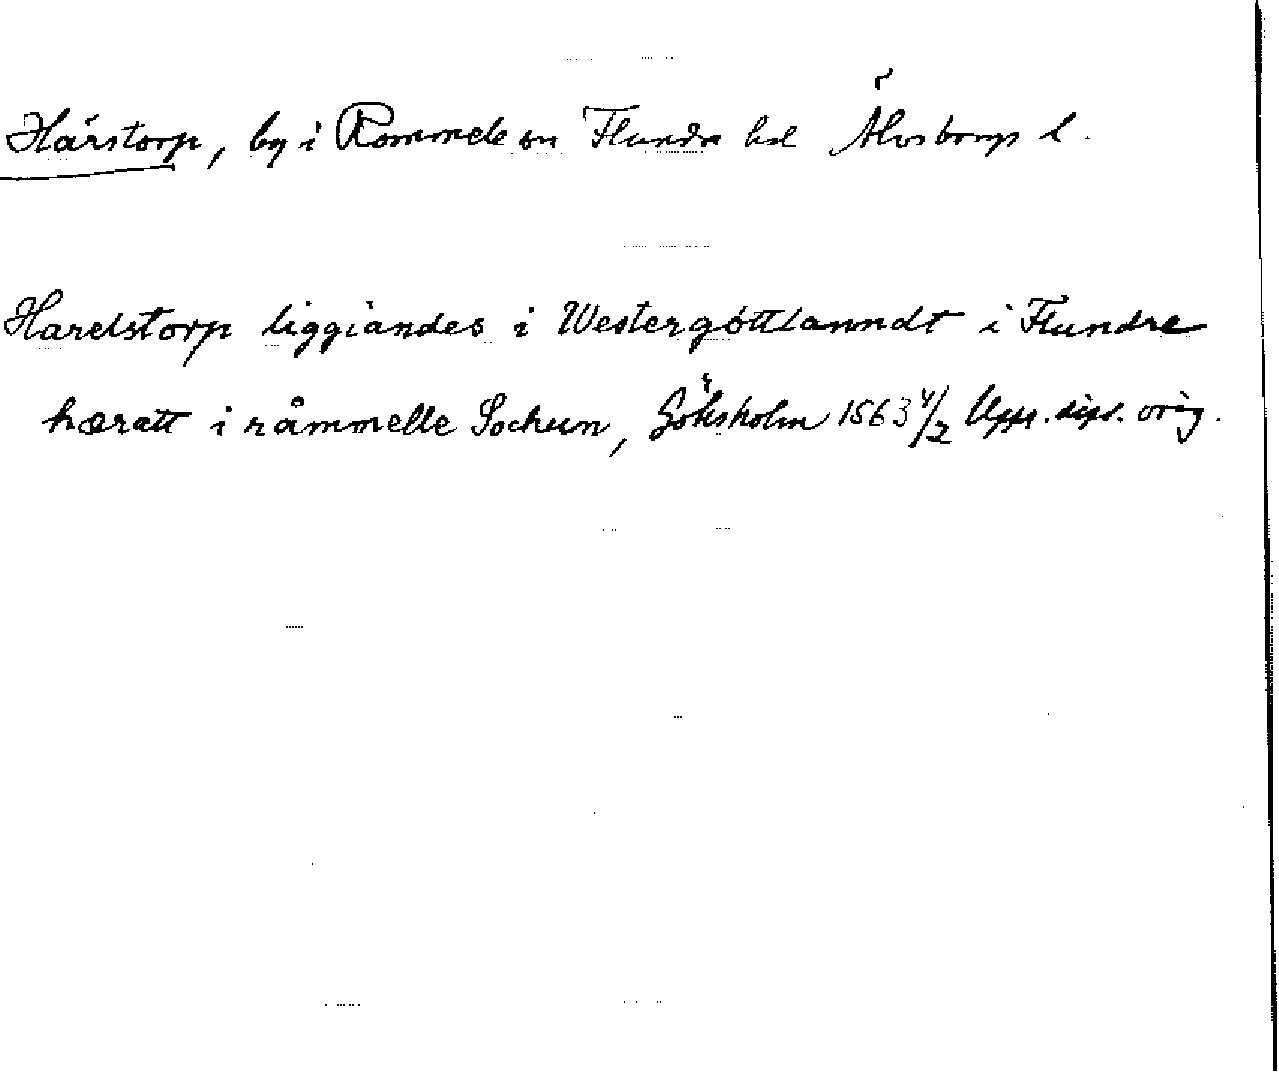 Härstorp, by i Rommele sn Flundre hd Älvsborgs l.
Harelstorp liggiandes i Westergöttlanndt i Flundre
hæratt i råmmelle Sochun, Göksholm 1563 4/2 Upps. dipl. orig.